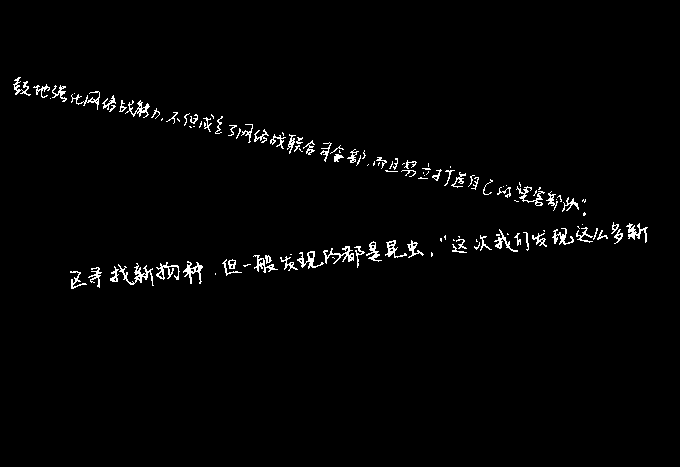 鼓地强化网络战能力,不但成立了网络战联合司令部,而且努立打造自己的“黑客部队”。
区寻找新物种,但一般发现的都是昆虫,“这次我们发现这么多新